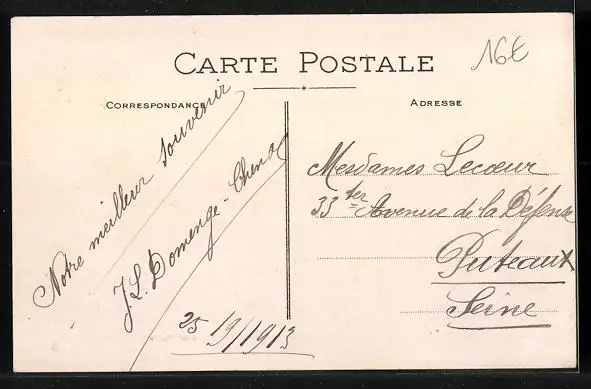 16€
CARTE POSTALE
CORRESPONDANCE
ADRESSE
Notre meilleur souvenir
J. L. Domenge-Chenal
25 19/1913
Mesdames Lecœur
33 ter Avenue de la Défense
Puteaux
Seine